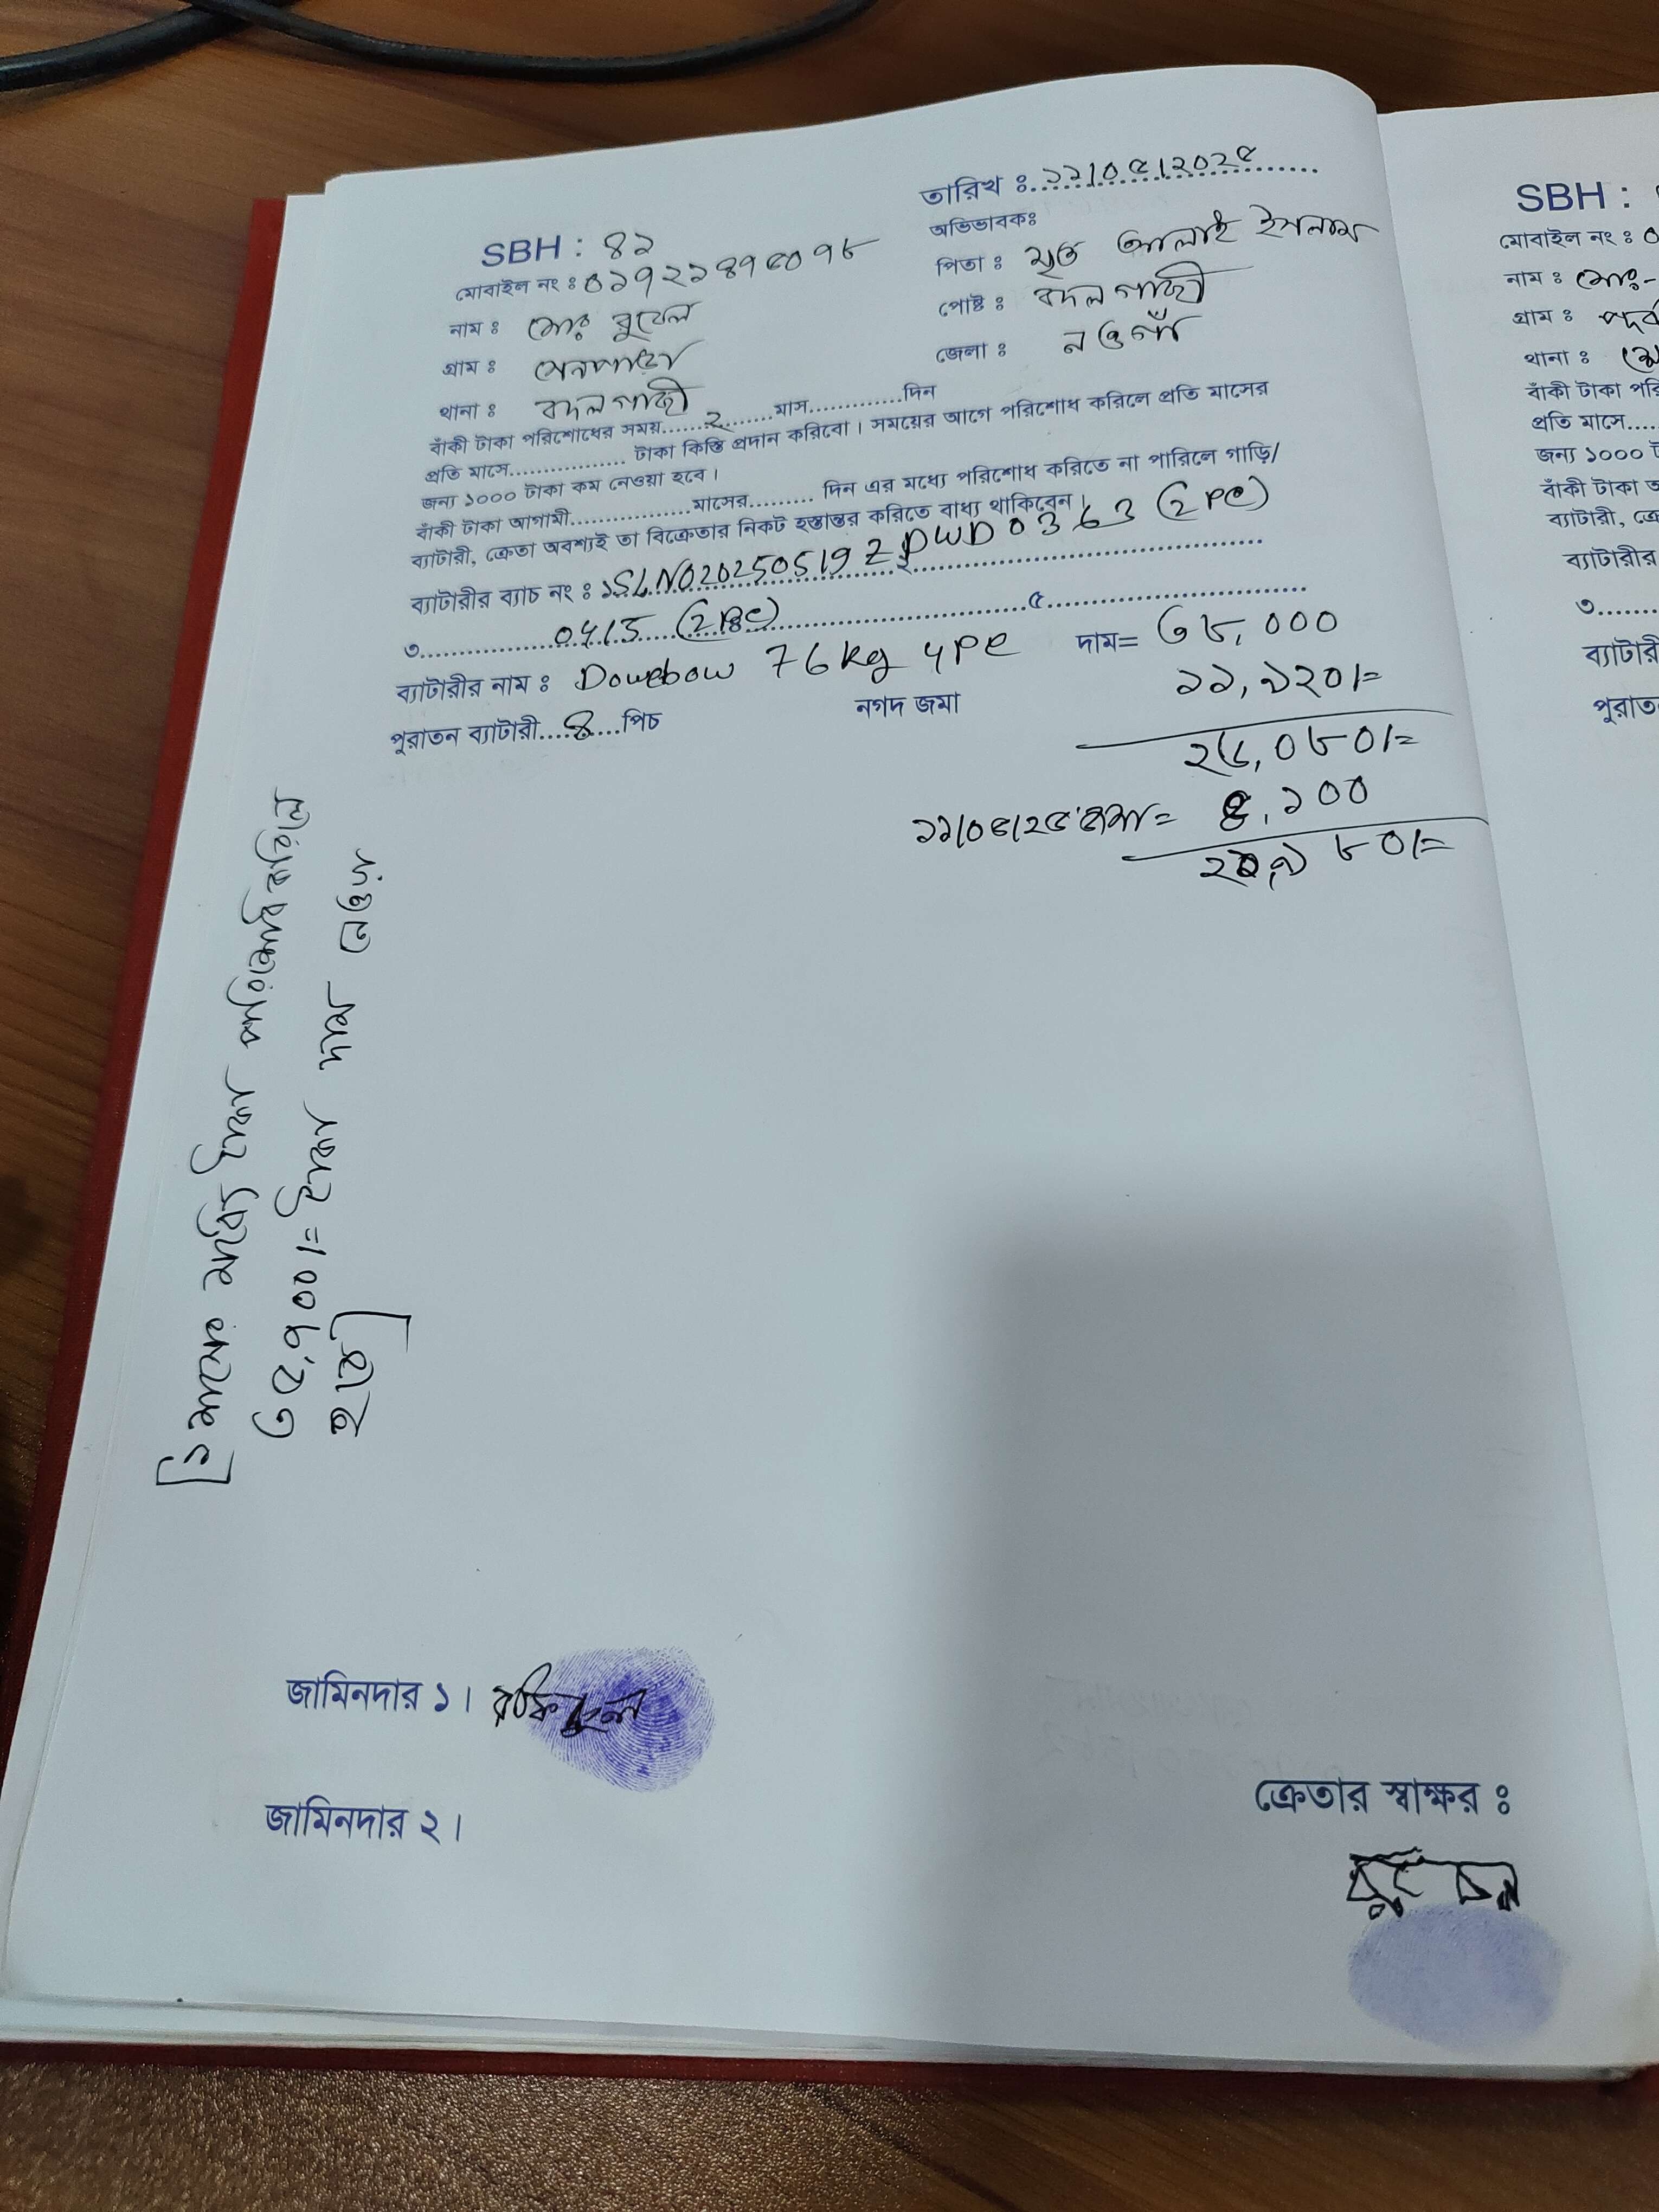 তারিখ ঃ ১১/০৫/২০২৫
SBH : ৪১
অভিভাবকঃ
মোবাইল নং ঃ ০১৭২১৪৭৫০৭৮
পিতা ঃ মৃত আলাই ইসলাম
নাম ঃ মোঃ রুবেল
পোষ্ট ঃ বদলগাজী
গ্রাম ঃ সেনপাড়া
জেলা ঃ নওগাঁ
থানা ঃ বদলগাজী
বাঁকী টাকা পরিশোধের সময়......২......মাস............দিন
প্রতি মাসে................ টাকা কিস্তি প্রদান করিবো। সময়ের আগে পরিশোধ করিলে প্রতি মাসের
জন্য ১০০০ টাকা কম নেওয়া হবে।
বাঁকী টাকা আগামী.................মাসের......... দিন এর মধ্যে পরিশোধ করিতে না পারিলে গাড়ি/
ব্যাটারী, ক্রেতা অবশ্যই তা বিক্রেতার নিকট হস্তান্তর করিতে বাধ্য থাকিবেন।
ব্যাটারীর ব্যাচ নং ঃ ১SLNO20250519ZDWD0363 (2Pe) ২
৩ 0415 (2Pe) ৫
ব্যাটারীর নাম ঃ Dowebow 76kg 4Pe দাম= ৩৮,০০০
পুরাতন ব্যাটারী....৪....পিচ নগদ জমা ১১,৯২০/=
২৬,০৮০/=
১১/০৫/২৫ জমা= ৫,১০০
২০,৯৮০/=
[১ মাসের মধ্যে টাকা পরিশোধ করিলে
৩৫,৭০০/= টাকা দাম নেওয়া
হবে]
জামিনদার ১।
জামিনদার ২।
ক্রেতার স্বাক্ষর ঃ
SBH :
মোবাইল নং ঃ ০
নাম ঃ মোঃ-
গ্রাম ঃ
থানা ঃ
বাঁকী টাকা পরি
প্রতি মাসে....
জন্য ১০০০ ট
বাঁকী টাকা আ
ব্যাটারী, ক্রে
ব্যাটারীর
৩.......
ব্যাটারী
পুরাত